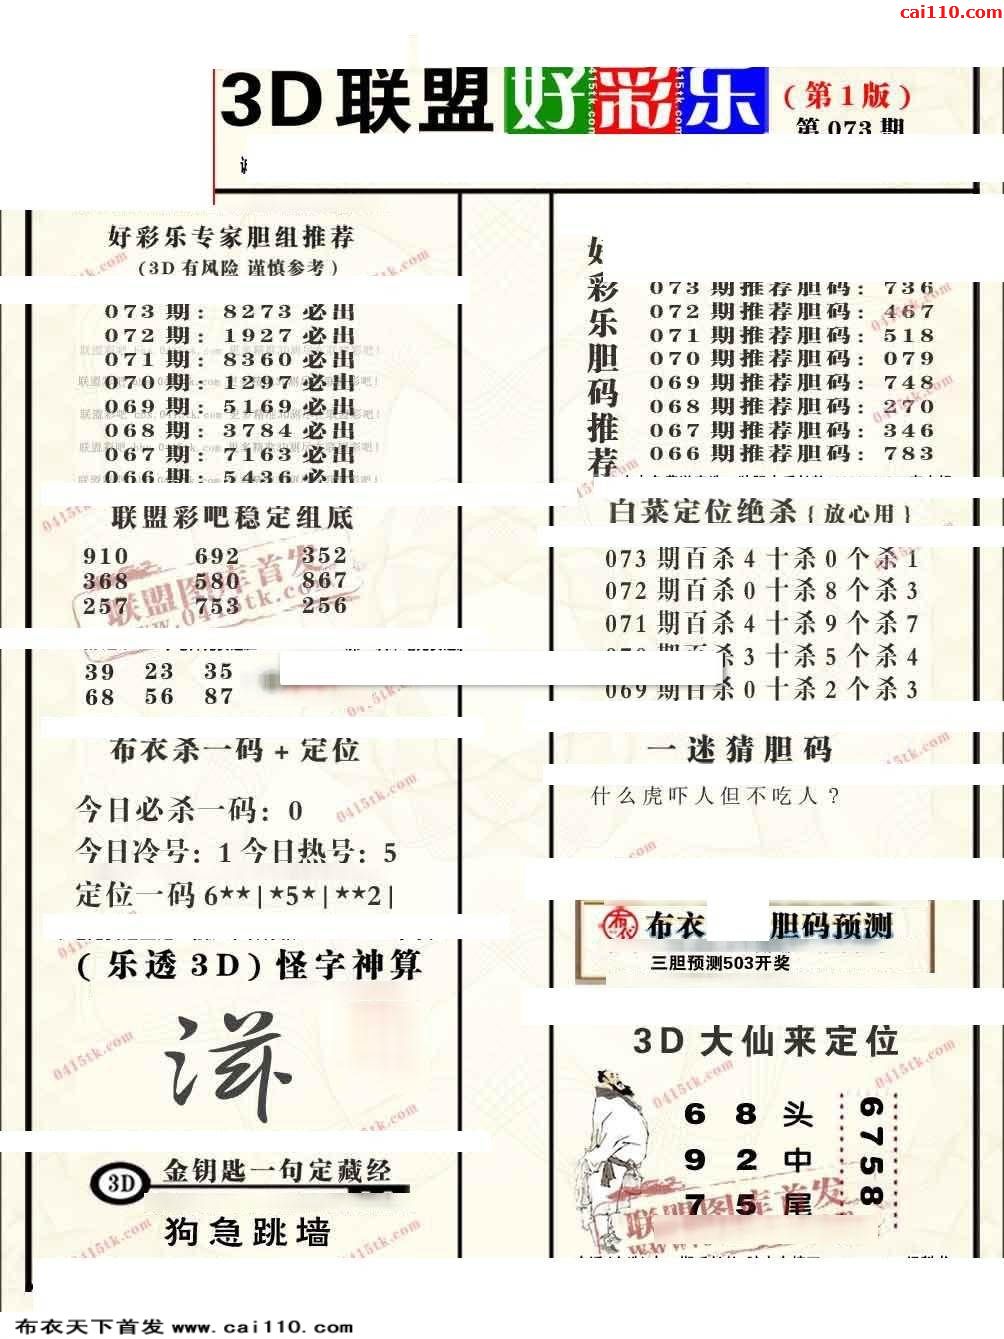 cai110.com
3D联盟好彩乐(第1版)
第073期
好彩乐专家胆组推荐
(3D有风险 谨慎参考)
073期: 8273必出
072期: 1927必出
071期: 8360必出
070期: 1297必出
069期: 5169必出
068期: 3784必出
067期: 7163必出
066期: 5436必出
联盟彩吧稳定组底
910 692 352
368 580 867
257 753 256
联盟图库首发
www.0415tk.com
39 23 35
68 56 87
布衣杀一码+定位
今日必杀一码: 0
今日冷号: 1 今日热号: 5
定位一码 6**|*5*|**2|
(乐透3D)怪字神算
3D 金钥匙一句定藏经
狗急跳墙
好彩乐胆码推荐
073期推荐胆码: 736
072期推荐胆码: 467
071期推荐胆码: 518
070期推荐胆码: 079
069期推荐胆码: 748
068期推荐胆码: 270
067期推荐胆码: 346
066期推荐胆码: 783
白菜定位绝杀{放心用}
073期百杀4十杀0个杀1
072期百杀0十杀8个杀3
071期百杀4十杀9个杀7
杀3十杀5个杀4
069期百杀0十杀2个杀3
一迷猜胆码
什么虎吓人但不吃人?
布衣 布衣 胆码预测
三胆预测503开奖
3D大仙来定位
6 8 头
9 2 中
7 5 尾
6758
联盟图库首发
0415tk.com
布衣天下首发 www.cai110.com